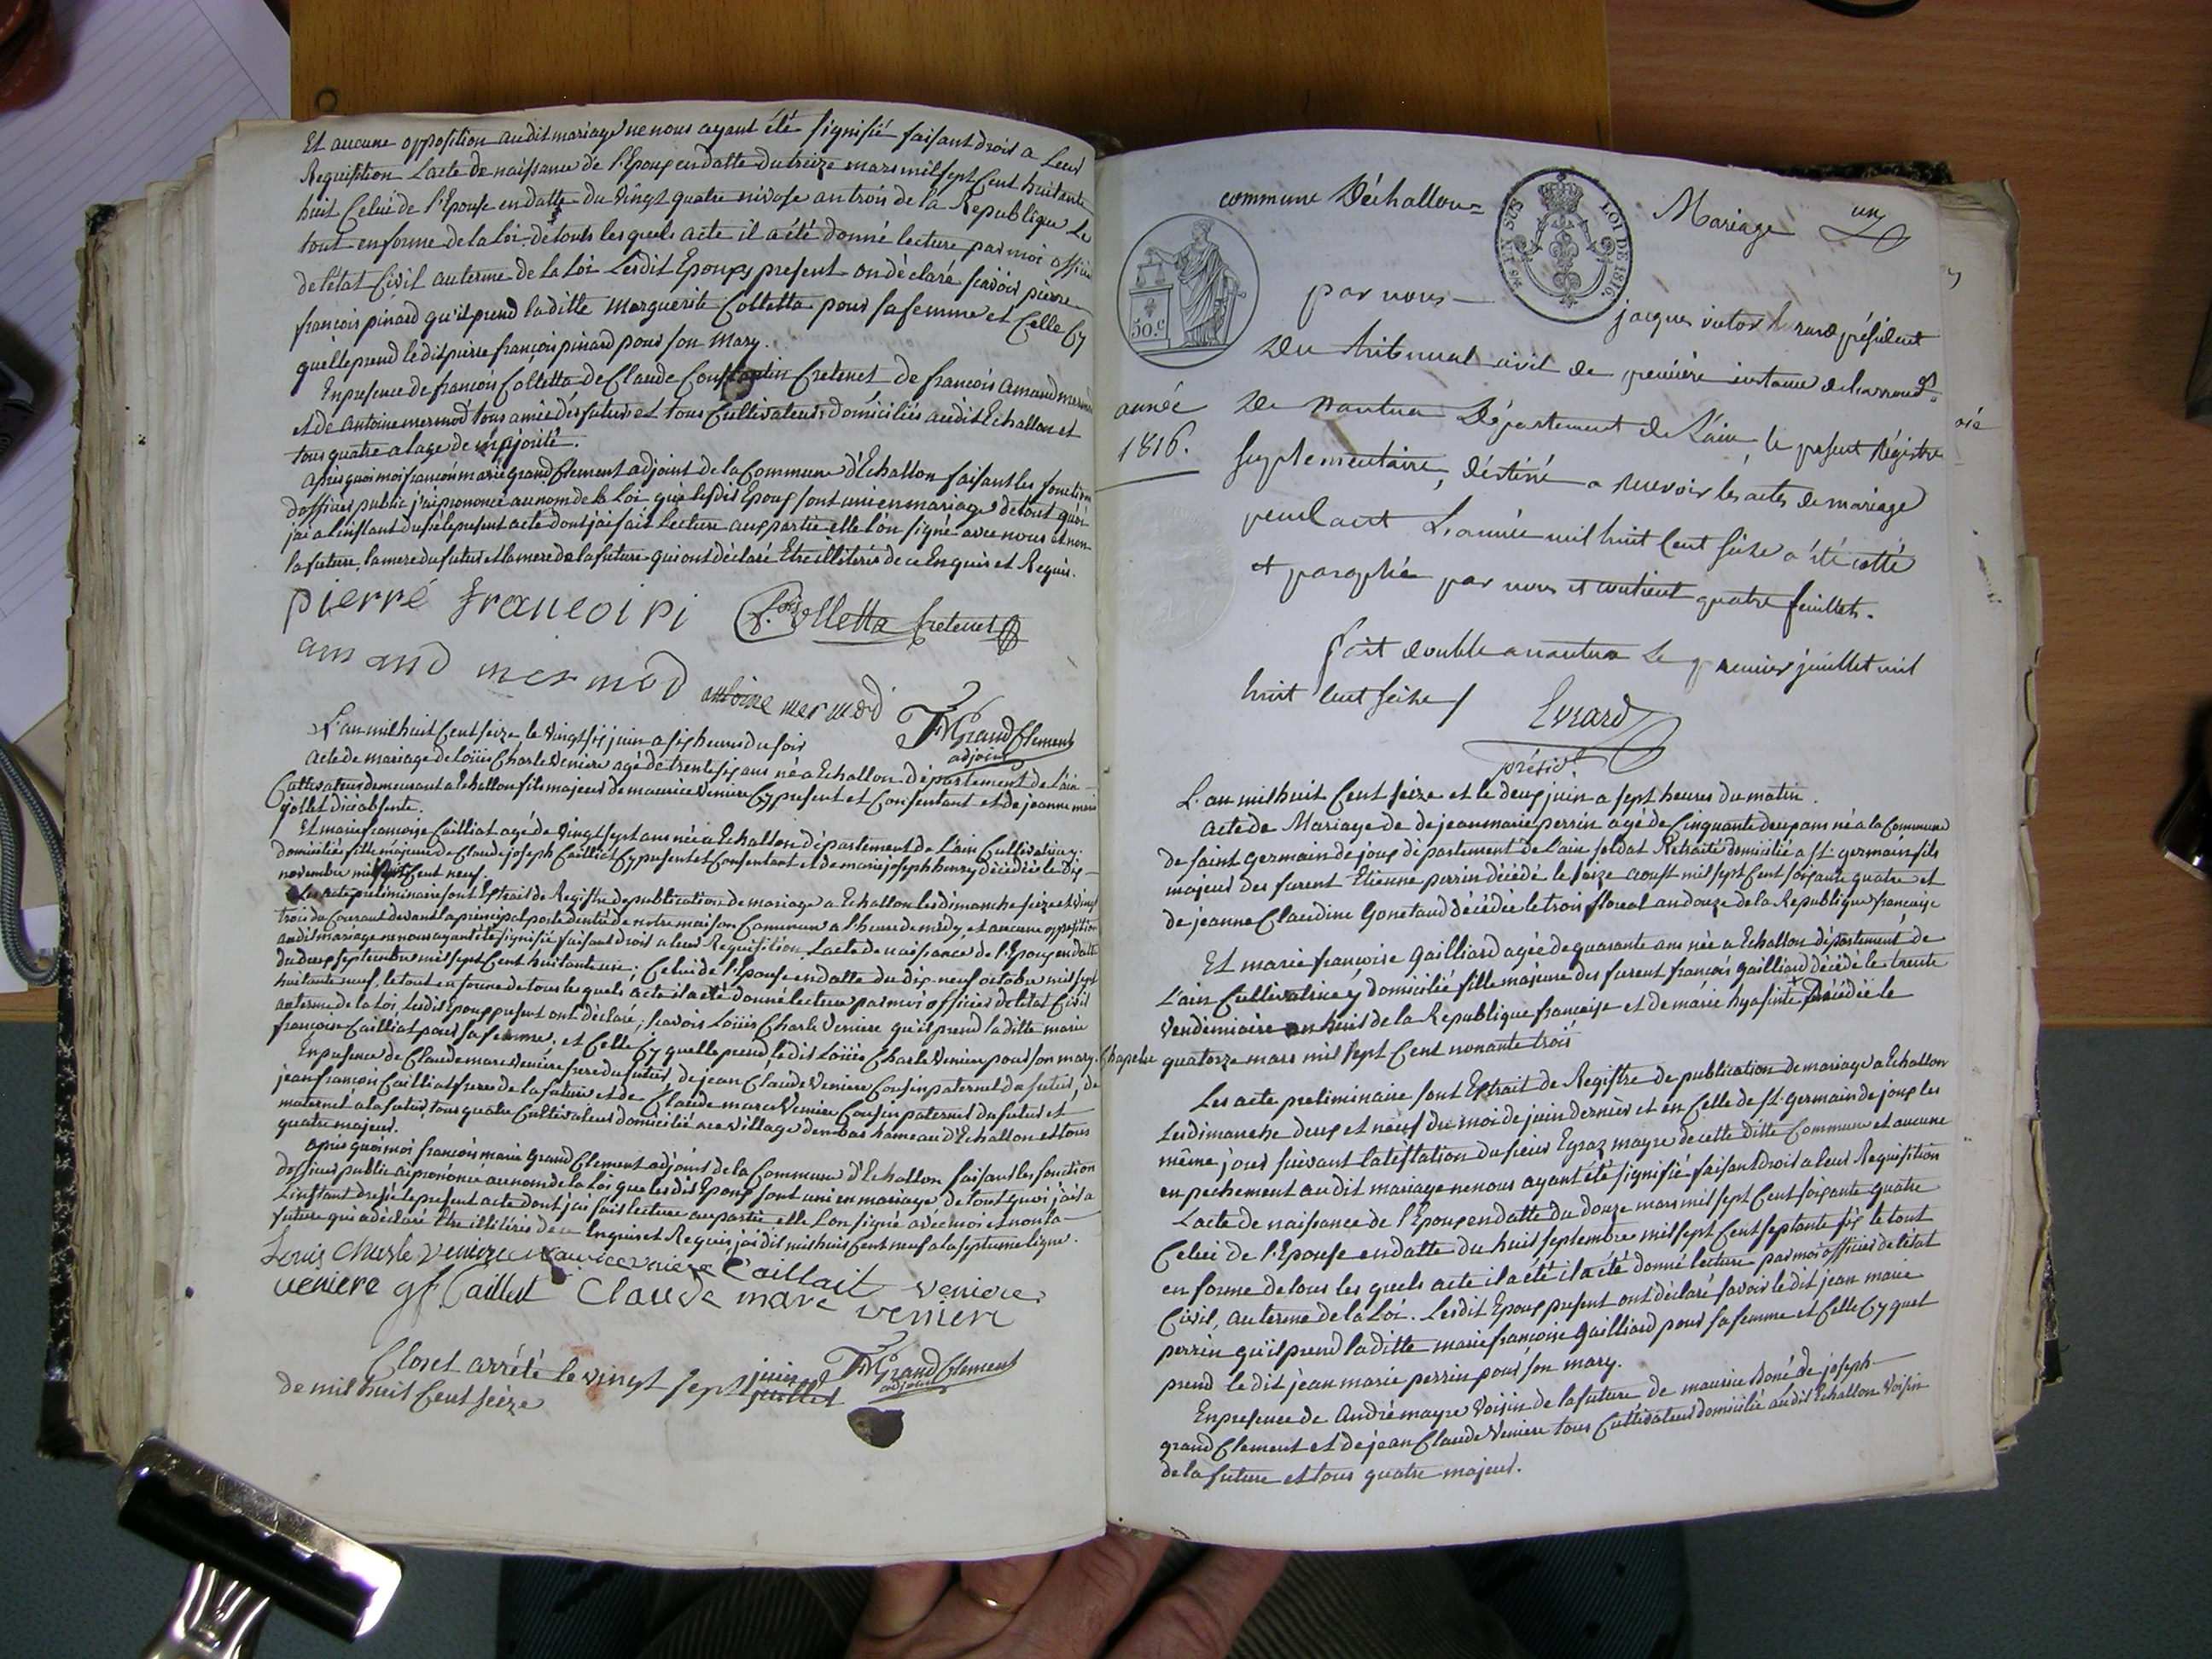 Et aucune opposition audit mariage ne nous ayant été signifié faisant droit a Leur
Requisition L'acte de naissance de l'Epoux en datte du treize mars mil sept Cent huitante
huit Celui de l'Epouse en datte du Vingt quatre nivose an trois de la Republique Le
tout en forme de la Loi de touts les quels acte il a été donné lecture par moi officier
de l'état Civil au terme de la Loi Lesdit Epoux present on déclaré scavoir pierre
françois pinard qu'il prend la ditte Marguerite Colletta pour sa femme et Celle Cy
quelle prend le dit pierre françois pinard pour son Mary.
En presence de françois Colletta de Claude Constantin Cretenet de francois amand mermod
et de antoine mermod tous amie des futurs et tous Cultivateurs domiciliés audit Echallon et
tous quatre a lage de majorité.
après quoi moi françois marie grand Clement adjoint de la Commune d'Echallon faisant les fonction
d'officier public j'ai prononcé au nom de la Loi que lesdis Epoux sont uni en mariage de tout quoi
jai a l'instant dressé le present acte dont j'ai fait Lecture aux partie elle l'on signé avec nous et non
la future, la mere du futur et la mere de la future qui ont déclaré Etre illitérés de ce Enquis et Requis.
pierré francoi pi f.ois Colletta Cretenet
amand mermod antoine mermod FMGrandClement
adjoint
L'an mil huit Cent seize le vingt six juin a six heures du soir
acte de mariage de Loüis Charle Veniere agé de trente six ans né a Echallon département de L'ain
Cultivateur demeurant a Echallon fils majeur de maurice Veniere Cy present et Consentant et de jeanne marie
jollet dicé absente.
Et marie françoise Cailliat agé de Vingt sept ans née a Echallon département de L'ain Cultivatrice y
domiciliée fille majeure de Claude joseph Cailliat Cy present et Consentant et de marie joseph henry décédée le dix
novembre mil huit Cent neuf.
Les acte preliminaire sont Extrait de Registre de publication de mariage a Echallon les dimanche seize et vingt
trois du Courant devant la principal porte d'entrée de notre maison Commune a l'heure de midy et aucune opposition
audit mariage ne nous ayant été signifié faisant droit a leur Requisition L'acte de naissance de l'Epoux en datte
du deux septembre mil sept Cent huitante un; Celui de l'Epouse en datte du dix-neuf octobre mil sept
huitante neuf, le tout en forme de tous les quels acte il a été donné lecture par moi officier de l'état Civil
au terme de la Loi, Lesdit Epoux present ont déclaré; scavoir Loüis Charle Veniere qu'il prend la ditte marie
françoise Cailliat pour sa femme, et Celle Cy quelle prend le dit Loüis Charle Veniere pour son mary.
En presence de Claude marc Veniere frere du futur, de jean Claude Veniere Cousin paternel du futur, de
jean francois Cailliat frere de la future et de Claude marc Veniere Cousin paternel du futur et
maternel a la future, tous quatre Cultivateurs domicilié au village d'en bas hameau d'Echallon et tous
quatre majeur.
après quoi moi françois marie grand Clement adjoint de la Commune d'Echallon faisant les fonction
d'officier public ai prononcé au nom de la Loi que les dis Epoux sont uni en mariage de tout quoi j'ai a
L'instant dressé le present acte dont j'ai fait lecture aux partie elle L'on signé avec moi et non la
future qui a déclaré être illitérée de ce Enquis et Requis, jai dit mil huit Cent neuf a la septieme ligne.
Louis Charle Veniere Maurice veniere Caillait Veniere
veniere gf. Cailliat Claude marc venier
Clos et arrété le vingt sept juin juillet FMGrandClement
adjoint
de mil huit Cent seize
commune D'échallon Mariage un
SUS LOI DE 1816.
50.c
par nous jacques victor Evrard président
du tribunal civil de première instance de l'arrond.t
année de Nantua Département de L'ain, le present Régistre
1816. supplementaire, destiné a recevoir les actes de mariage
pendant L'année mil huit Cent Seize a été cotté
et paraphé par nous et contient quatre feuillets.
fait double a nantua Le premier juillet mil
huit Cent Seize / Evrard
présid.t
L'an mil huit Cent seize et le deux juin a sept heures du matin.
acte de Mariage de de jean marie perrin agé de Cinquante deux ans né a la Commune
de saint germain de joux département de L'ain soldat Retraité domicilié a St. germain fils
majeur des furent Etienne perrin décédé le seize aoust mil sept Cent soixante quatre et
de jeanne Claudine Gonetaud décédée le trois floreal an douze de la Republique francaise
Et marie françoise Gailliard agée de quarante ans née a Echallon département de
L'ain Cultivatrice y domicilié fille majeure des furent françois Gailliard décédé le trente
Vendémiaire an huit de la Republique francaise et de marie hyasinte + décédée le
Chapelu quatorze mars mil sept Cent nonante trois
Les acte preliminaire sont Extrait de Registre de publication de mariage a Echallon
Les dimanche deux et neuf du moi de juin dernier et en Celle de St. germain de joux les
même jour suivant l'atestation du sieur Egraz mayre de cette ditte Commune et aucune
enpechement au dit mariage ne nous ayant été signifié faisant droit a leur Requisition
L'acte de naissance de l'Epoux en datte du douze mars mil sept Cent soixante quatre
Celui de l'Epouse en datte du huit septembre mil sept Cent septante six le tout
en forme de tous les quels acte il a été il a été donné lecture par moi officier de l'état
Civil, au terme de la Loi. Lesdit Epoux present ont déclaré savoir le dit jean marie
perrin qu'il prend la ditte marie françoise Gailliard pour sa femme et Celle Cy quel
prend le dit jean marie perrin pour son mary.
En presence de André mayre Voisin de la future de maurice Boné de joseph
grand Clement et de jean Claude Veniere tous Cultivateur domicilié audit Echallon Voisin
de la future et tous quatre majeur.